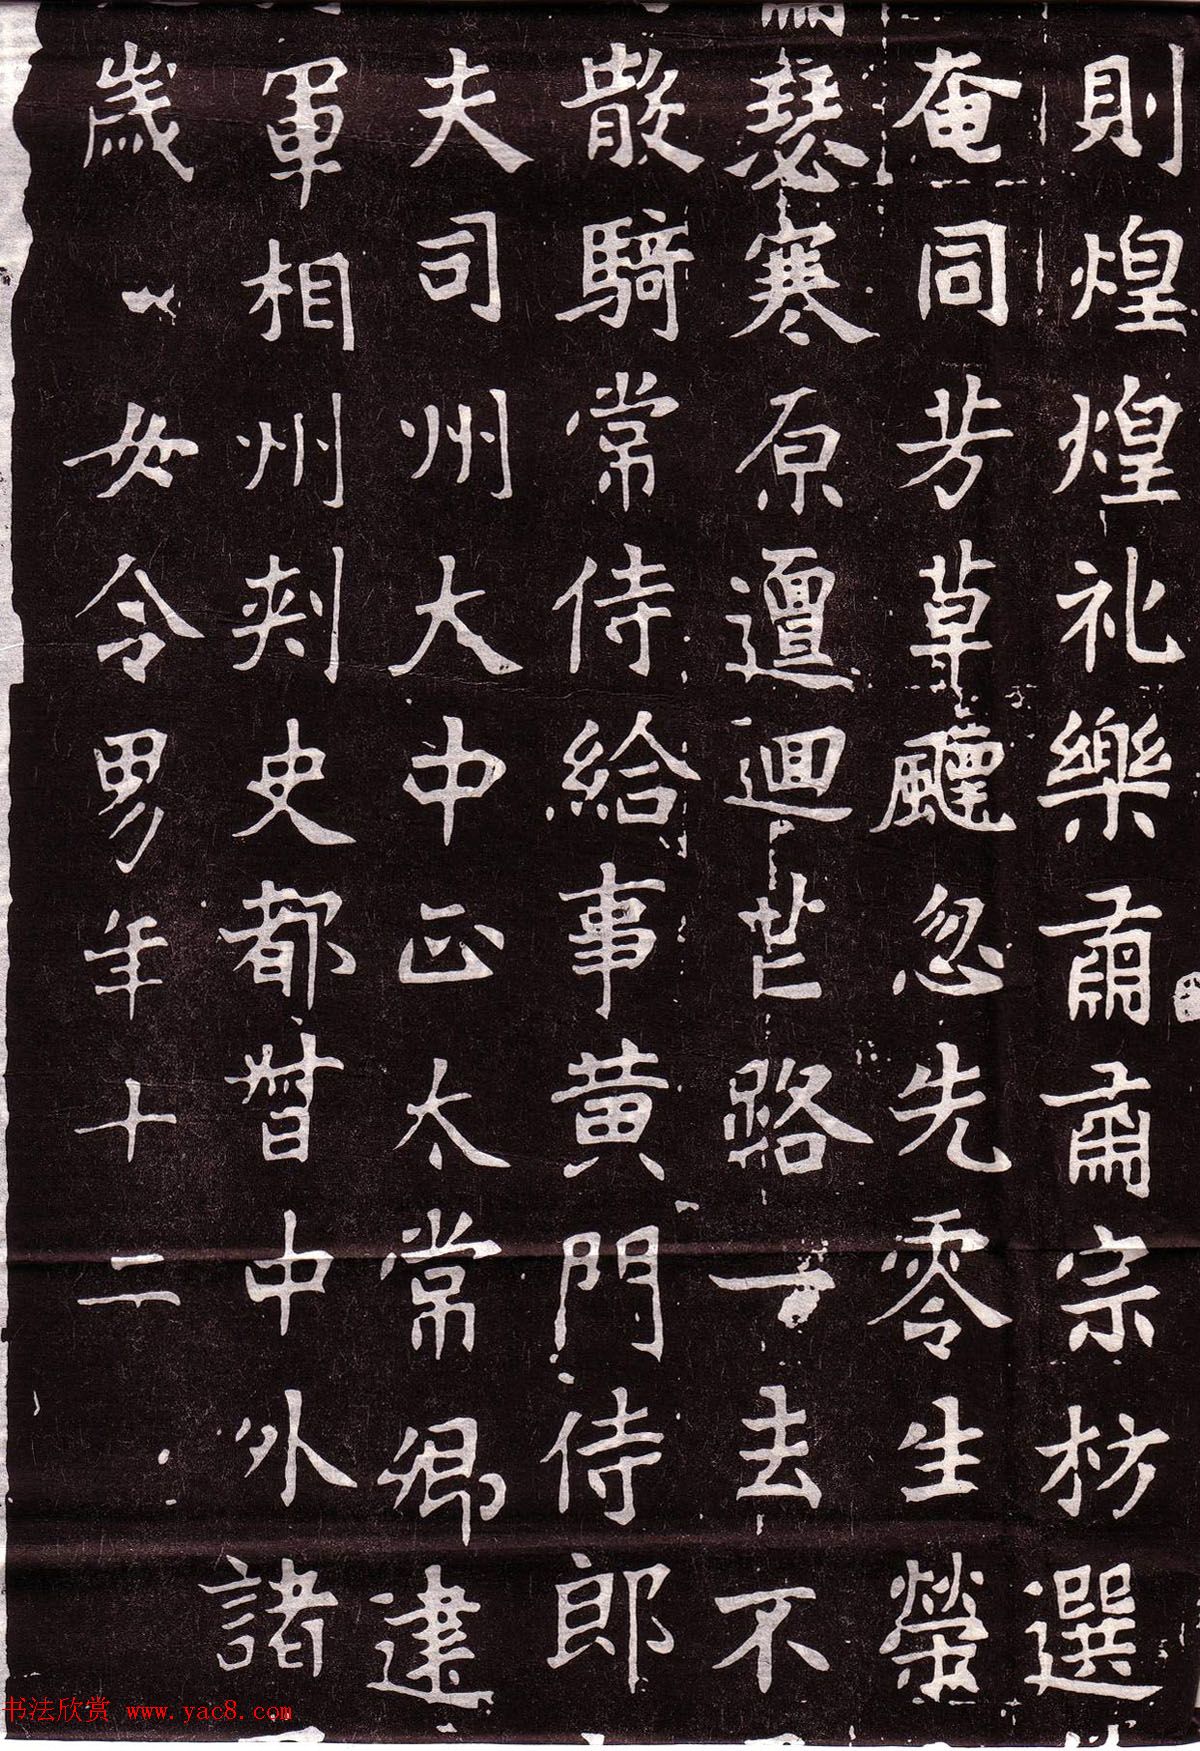 則煌煌礼樂肅肅宗枋選
奄同芳草飈忽先零生榮
瑟寒原邅迴芒路一去不
散騎常侍給事黃門侍郎
夫司州大中正太常卿建
軍相州刺史都督中外諸
歲女令男年十二
书法欣赏 www.yac8.com